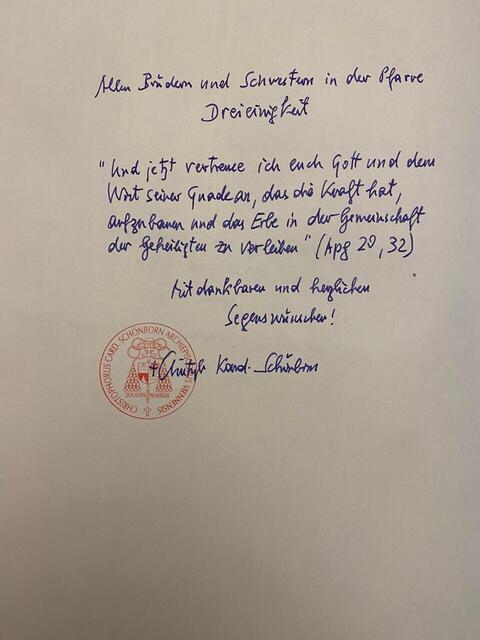 Allen Brüdern und Schwestern in der Pfarre
Dreieinigkeit
"Und jetzt vertraue ich euch Gott und dem
Wort seiner Gnade an, das die Kraft hat,
aufzubauen und das Erbe in der Gemeinschaft
der Geheiligten zu verleihen" (Apg 20,32)
Mit dankbaren und herzlichen
Segenswünschen!
+ Christoph Kard. Schönborn
CHRISTOPHORUS CARD. SCHÖNBORN ARCHIEPISCOPUS VIENNENSIS